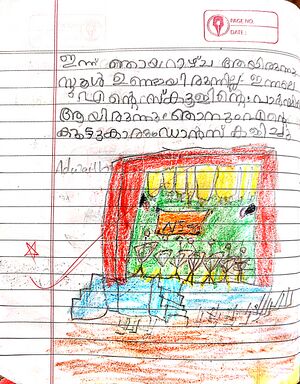 PAGE NO.
DATE:
ഇന്ന് ഞായറാഴ്ച ആയിരുന്നു
സ്കൂൾ ഉണ്ടായിരുന്നില്ല ഇന്നലെ
എന്റെ സ്കൂളിന്റെ
ആയിരുന്നു ഞാനും എന്റെ
കൂട്ടുകാരും ഡാൻസ് കളിച്ചു